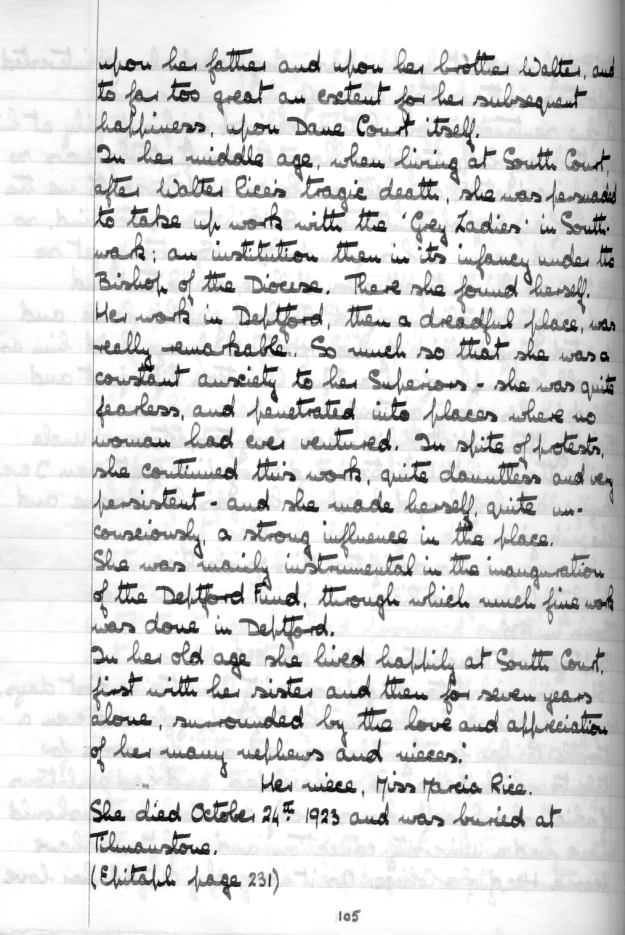 upon her father and upon her brother Walter, and
to far too great an extent for her subsequent
happiness, upon Dane Court itself.
In her middle age, when living at South Court,
after Walter Rice's tragic death, she was persuaded
to take up work with the 'Grey Ladies' in South-
wark; an institution then in its infancy under the
Bishop of the Diocese. There she found herself.
Her work in Deptford, then a dreadful place, was
really remarkable. So much so that she was a
constant anxiety to her Superiors - she was quite
fearless, and penetrated into places where no
woman had ever ventured. In spite of protests,
she continued this work, quite dauntless and very
persistent - and she made herself, quite un-
consciously, a strong influence in the place.
She was mainly instrumental in the inauguration
of the Deptford Fund, through which much fine work
was done in Deptford.
In her old age she lived happily at South Court,
first with her sister and then for seven years
alone, surrounded by the love and appreciation
of her many nephews and nieces."
Her niece, Miss Marcia Rice.
She died October 24th 1923 and was buried at
Tilmanstone.
(Epitaph page 231)
105